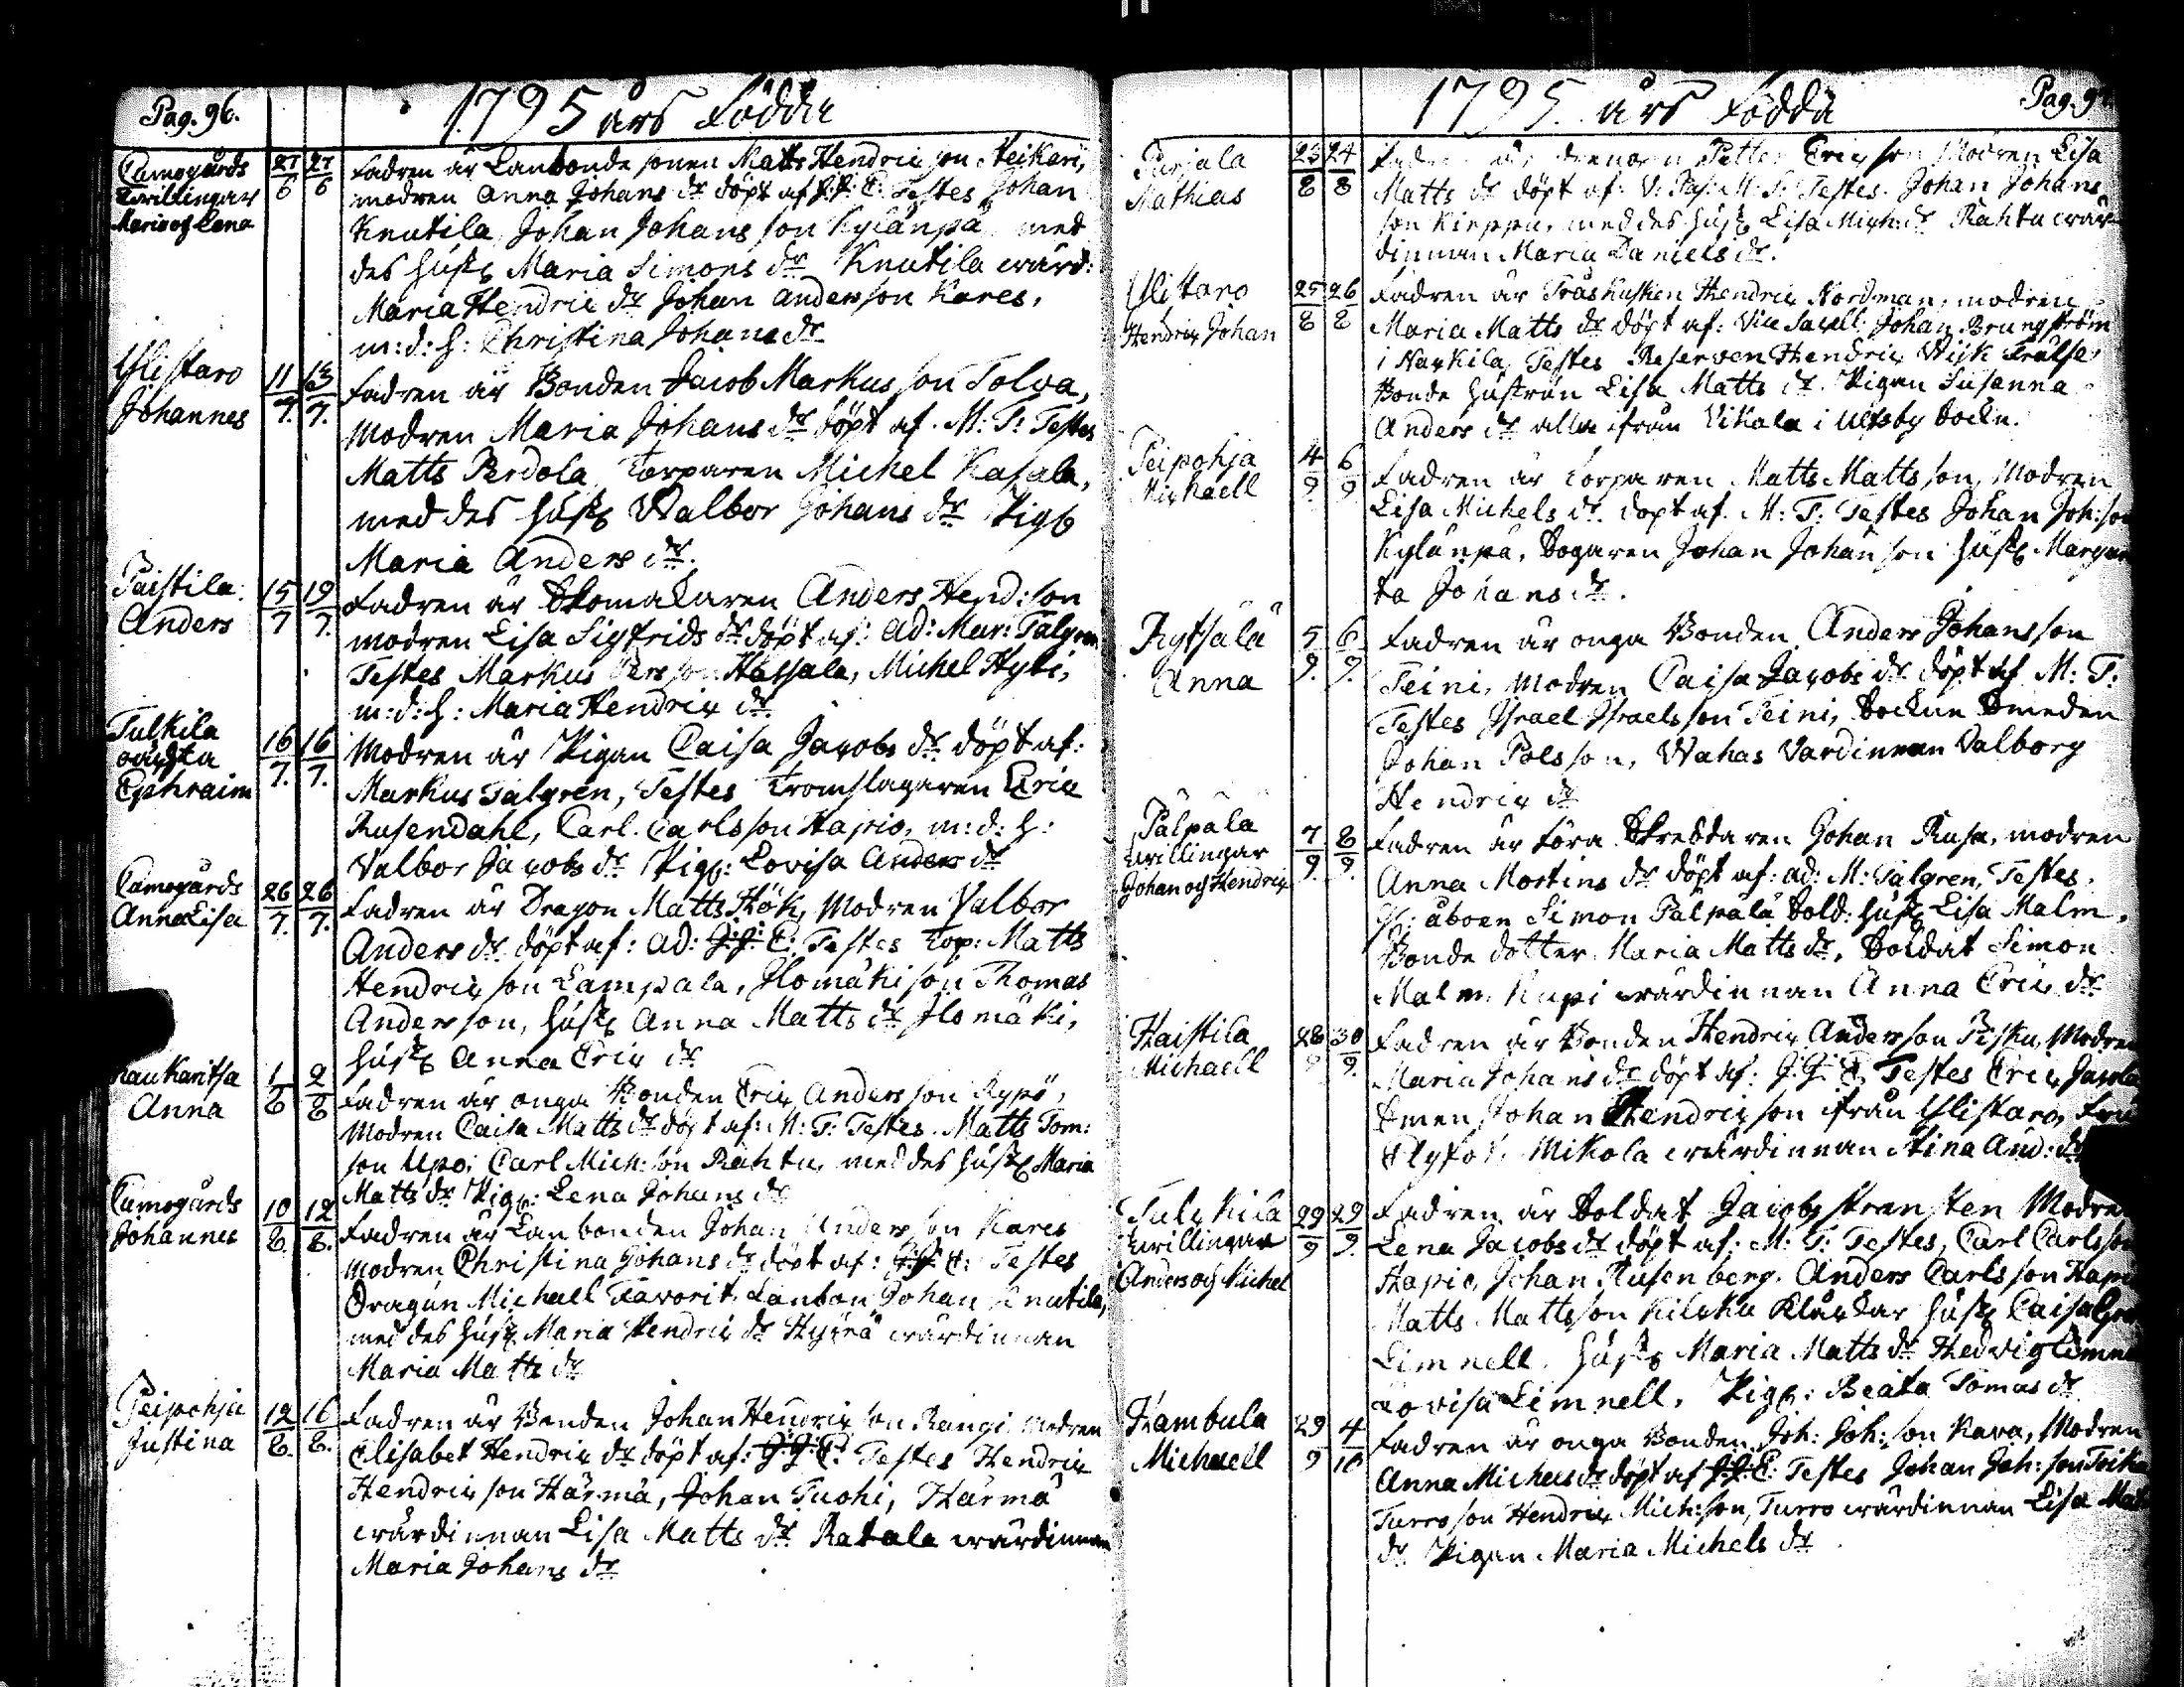 Pag. 96.
1795 års Födda
Cumogårds
Twillingar
Maria och Lena
27/6 27/6
Fadren är Lanbonde sonen Matts Hendricsson Heikari,
modren Anna Johans dr döpt af J: J: C: Testes Johan
Knutila, Johan Johansson Kylänpä med
des hust Maria Simons dr Knutila wärd:
Maria Hendric dr Johan Andersson Kares,
m:d:h: Christina Johans dr
Ylistaro
Johannes
11/7. 13/7.
Fadren är Bonden Jacob Markusson Tolva,
Modren Maria Johans dr döpt af. M: T: Testes
Matts Perdola, Torparen Michel Kasala,
med des hust Walbor Johans dr Pig
Maria Anders dr.
Paistila.
Anders
15/7 19/7.
Fadren är Skomakaren Anders Hend:son
modren Lisa Sigfrids dr döpt af: ad: Mar: Talgren
Testes Markus Hassala, Michel Hyti,
m:d:h: Maria Hendric dr
Tulkila
oäckta
Ephraim
16/7. 16/7.
Modren är Pigan Caisa Jacobs dr döpt af:
Markus Talgren, Testes Tromslagaren Eric
Rusendahl, Carl Carlsson Hapio, m:d:h:
Valbor Jacobs dr Pig: Lovisa Anders dr
Cumogårds
Anna Lisa
26/7. 26/7.
Fadren är Dragon Matts Hök, Modren Valbor
Anders dr döpt af: ad: J: J: C: Testes Torp: Matts
Hendricsson Lampala, Ilomäki son Thomas
Andersson, hust Anna Matts dr Ilomäki,
hust Anna Eric dr
Raukantsa
Anna
1/8 2/8
Fadren är onga Bonden Eric Andersson Rypö,
Modren Caisa Matts dr döpt af: M: T: Testes Matts Tom:
son Upo, Carl Mich:son Rahtu, med des hust Maria
Matts dr Pig: Lena Johans dr
Cumogårds
Johannes
10/8. 12/8.
Fadren är Lanbonden Johan Andersson Kares
modren Christina Johans dr döpt af: J: J: C: Testes
Dragun Michael Favorit, Lanbon Johan Knutila,
med des hust Maria Hendric dr Hyrrä wärdinnan
Maria Matts dr
Peipohja
Justina
12/8. 16/8.
Fadren är Bonden Johan Hendricsson Rangi modren
Elisabet Hendric dr döpt af: J: J: C: Testes Hendric
Hendricsson Härmä, Johan Tuohi, Härmä
wärdinnan Lisa Matts dr Ratala wärdinnan
Maria Johans dr
1795. års Födda
Pag. 9
Purjala
Mathias
23/8 24/8
Fadren är drengen Petter Ericsson Modren Lisa
Matts dr döpt af: V: Pas: M: T: Testes. Johan Johans
son Kieppu, med des hust Lisa Mich: dr Rahtu wär
dinnan Maria Daniels dr.
Ylistaro
Hendric Johan
25/8 26/8
Fadren är Hendric Nordman, modren
Maria Matts dr döpt af: Vice Sacell: Johan Brungström
i Nakkila, Testes Reserven Hendric Wijk Frälse
Bonde hustrun Lisa Matts dr. Pigan Susanna
Anders dr alla ifrån Vikala i Ulfsby Sockn.
Peipohja
Michaell
4/9 6/9
Fadren är Torparen Matts Matts son, Modren
Lisa Michels dr. döpt af. M: T: Testes Johan Joh:son
Kylänpä, Sogaren Johan Johansson hust Margare
ta Johans dr.
Rytsälä
Anna
5/9. 6/9.
Fadren är onga Bonden Anders Johansson
Teini, Modren Caisa Jacobs dr döpt af M: T:
Testes Israel Israelsson Teini, Socknesmeden
Johan Polsson, Wahas Vardinnan Valborg
Hendric dr
Pälpälä
twillingar
Johan och Hendric
7/9. 8/9.
Fadren är Töra Skreddaren Johan Rusa, modren
Anna Mortins dr döpt af: ad: M: Talgren, Testes.
åboen Simon Pälpälä Sold: hust Lisa Malm,
Bonde dotter Maria Matts dr, Soldat Simon
Malm, Kupi wärdinnan Anna Eric dr
Haistila
Michaell
28/9 30/9.
Fadren är Bonden Hendric Andersson Pisku, Modren
Maria Johans dr döpt af: J: J: C: Testes Eric Jacola
Smen Johan Hendricsson från Ylistaro,
Mikola wärdinnan Stina And: dr
Tulckila
twillingar
Anders och Michel
29/9 29/9.
Fadren är Soldat Jacob Modren
Lena Jacobs dr döpt af: M: T: Testes, Carl Carlsson
Hapio, Johan Rusenberg. Anders Carlsson Hapio
Matts Mattsson Kilsku Klåckar hust Caisa
Limnell. hust Maria Matts dr Hedvig Limne
Lovisa Limnell, Pig: Beata Tomas dr
Kambula
Michaell
29/9 4/10
Fadren är onga Bonden Joh: Joh:son Kava, Modren
Anna Michels dr döpt af J: J: C: Testes Johan Joh:son
Turro son Hendric Mich:son, Turro wärdinnan Lisa Mat
dr Pigan Maria Michels dr